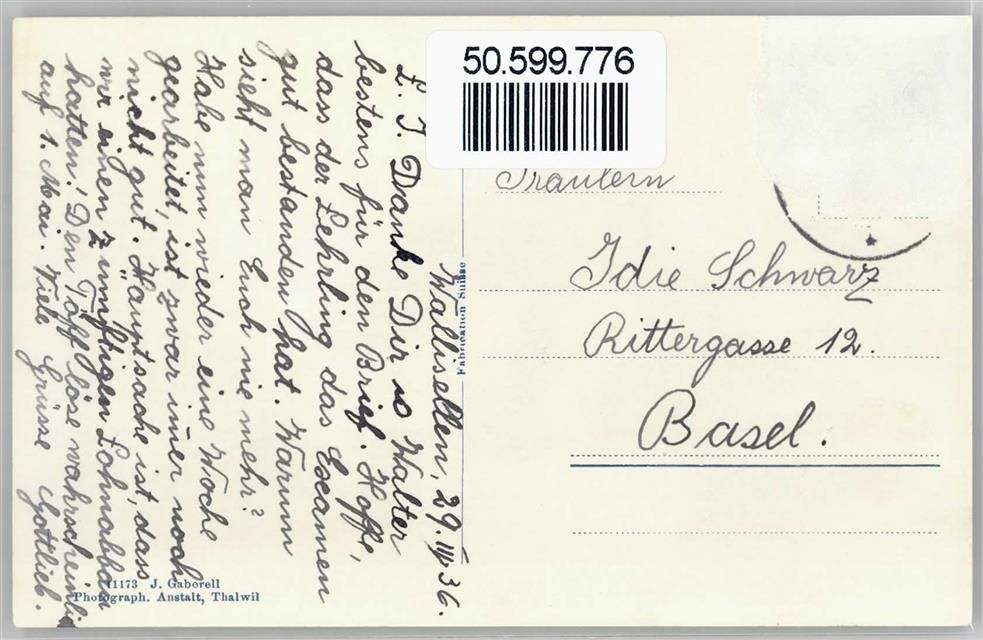 Wallisellen, 29. IV 36.
L. I. Danke Dir u Walter
bestens für den Brief. Hoffe,
dass der Lehrling das Examen
gut bestanden hat. Warum
sieht man Euch nie mehr?
Habe nun wieder eine Woche
gearbeitet, ist zwar im̄er noch
nicht gut. Hauptsache ist, dass
wir einen zünftigen Lohnabbau
hatten! Den Töff löse wahrscheinlich
auf 1. Mai. Viele Grüsse Gottlieb.
11173 J. Gaberell
Photograph. Anstalt, Thalwil
Fabrication Suisse
50.599.776
Fräulein
Idie Schwarz
Rittergasse 12.
Basel.